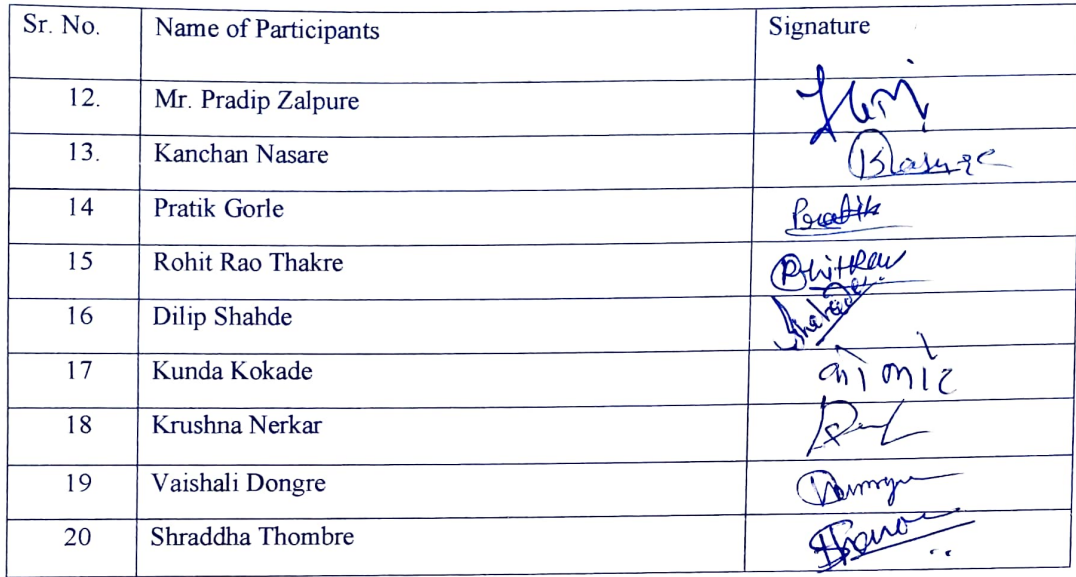 Sr. No. Name of Participants Signature
12. Mr. Pradip Zalpure
13. Kanchan Nasare
14 Pratik Gorle Pratik
15 Rohit Rao Thakre
16 Dilip Shahde
17 Kunda Kokade
18 Krushna Nerkar
19 Vaishali Dongre
20 Shraddha Thombre